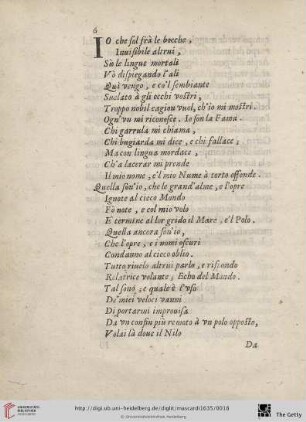 6
IO che sol frà le bocche,
Inuisibile altrui,
Sù le lingue mortali
Vò dispiegando l'ali
Quì vengo, e co'l sembiante
Suelato à gli occhi vostri,
Troppo nobil cagion vuol, ch'io mi mostri.
Ogn'vn mi riconosce. Io son la Fama.
Chi garrula mi chiama,
Chi bugiarda mi dice, e chi fallace;
Ma con lingua mordace,
Ch'a lacerar mi prende
Il mio nome, e'l mio Nume à torto offende.
Quella son'io, che le grand'alme, e l'opre
Ignote al cieco Mondo
Fò note, e col mio volo
E termine al lor grido il Mare, e'l Polo.
Quella ancora son'io,
Che l'opre, e i nomi oscuri
Condanno al cieco oblio.
Tutto riuelo altrui parlo, e rispondo
Relatrice volante, Echo del Mondo.
Tal sono, e qual'è l'vso
De' miei veloci vanni
Di portarmi improuisa
Da vn confin più remoto à vn polo opposto,
Volai là doue il Nilo
Da
http://digi.ub.uni-heidelberg.de/diglit/mascardi1635/0016
© Universitätsbibliothek Heidelberg
The Getty